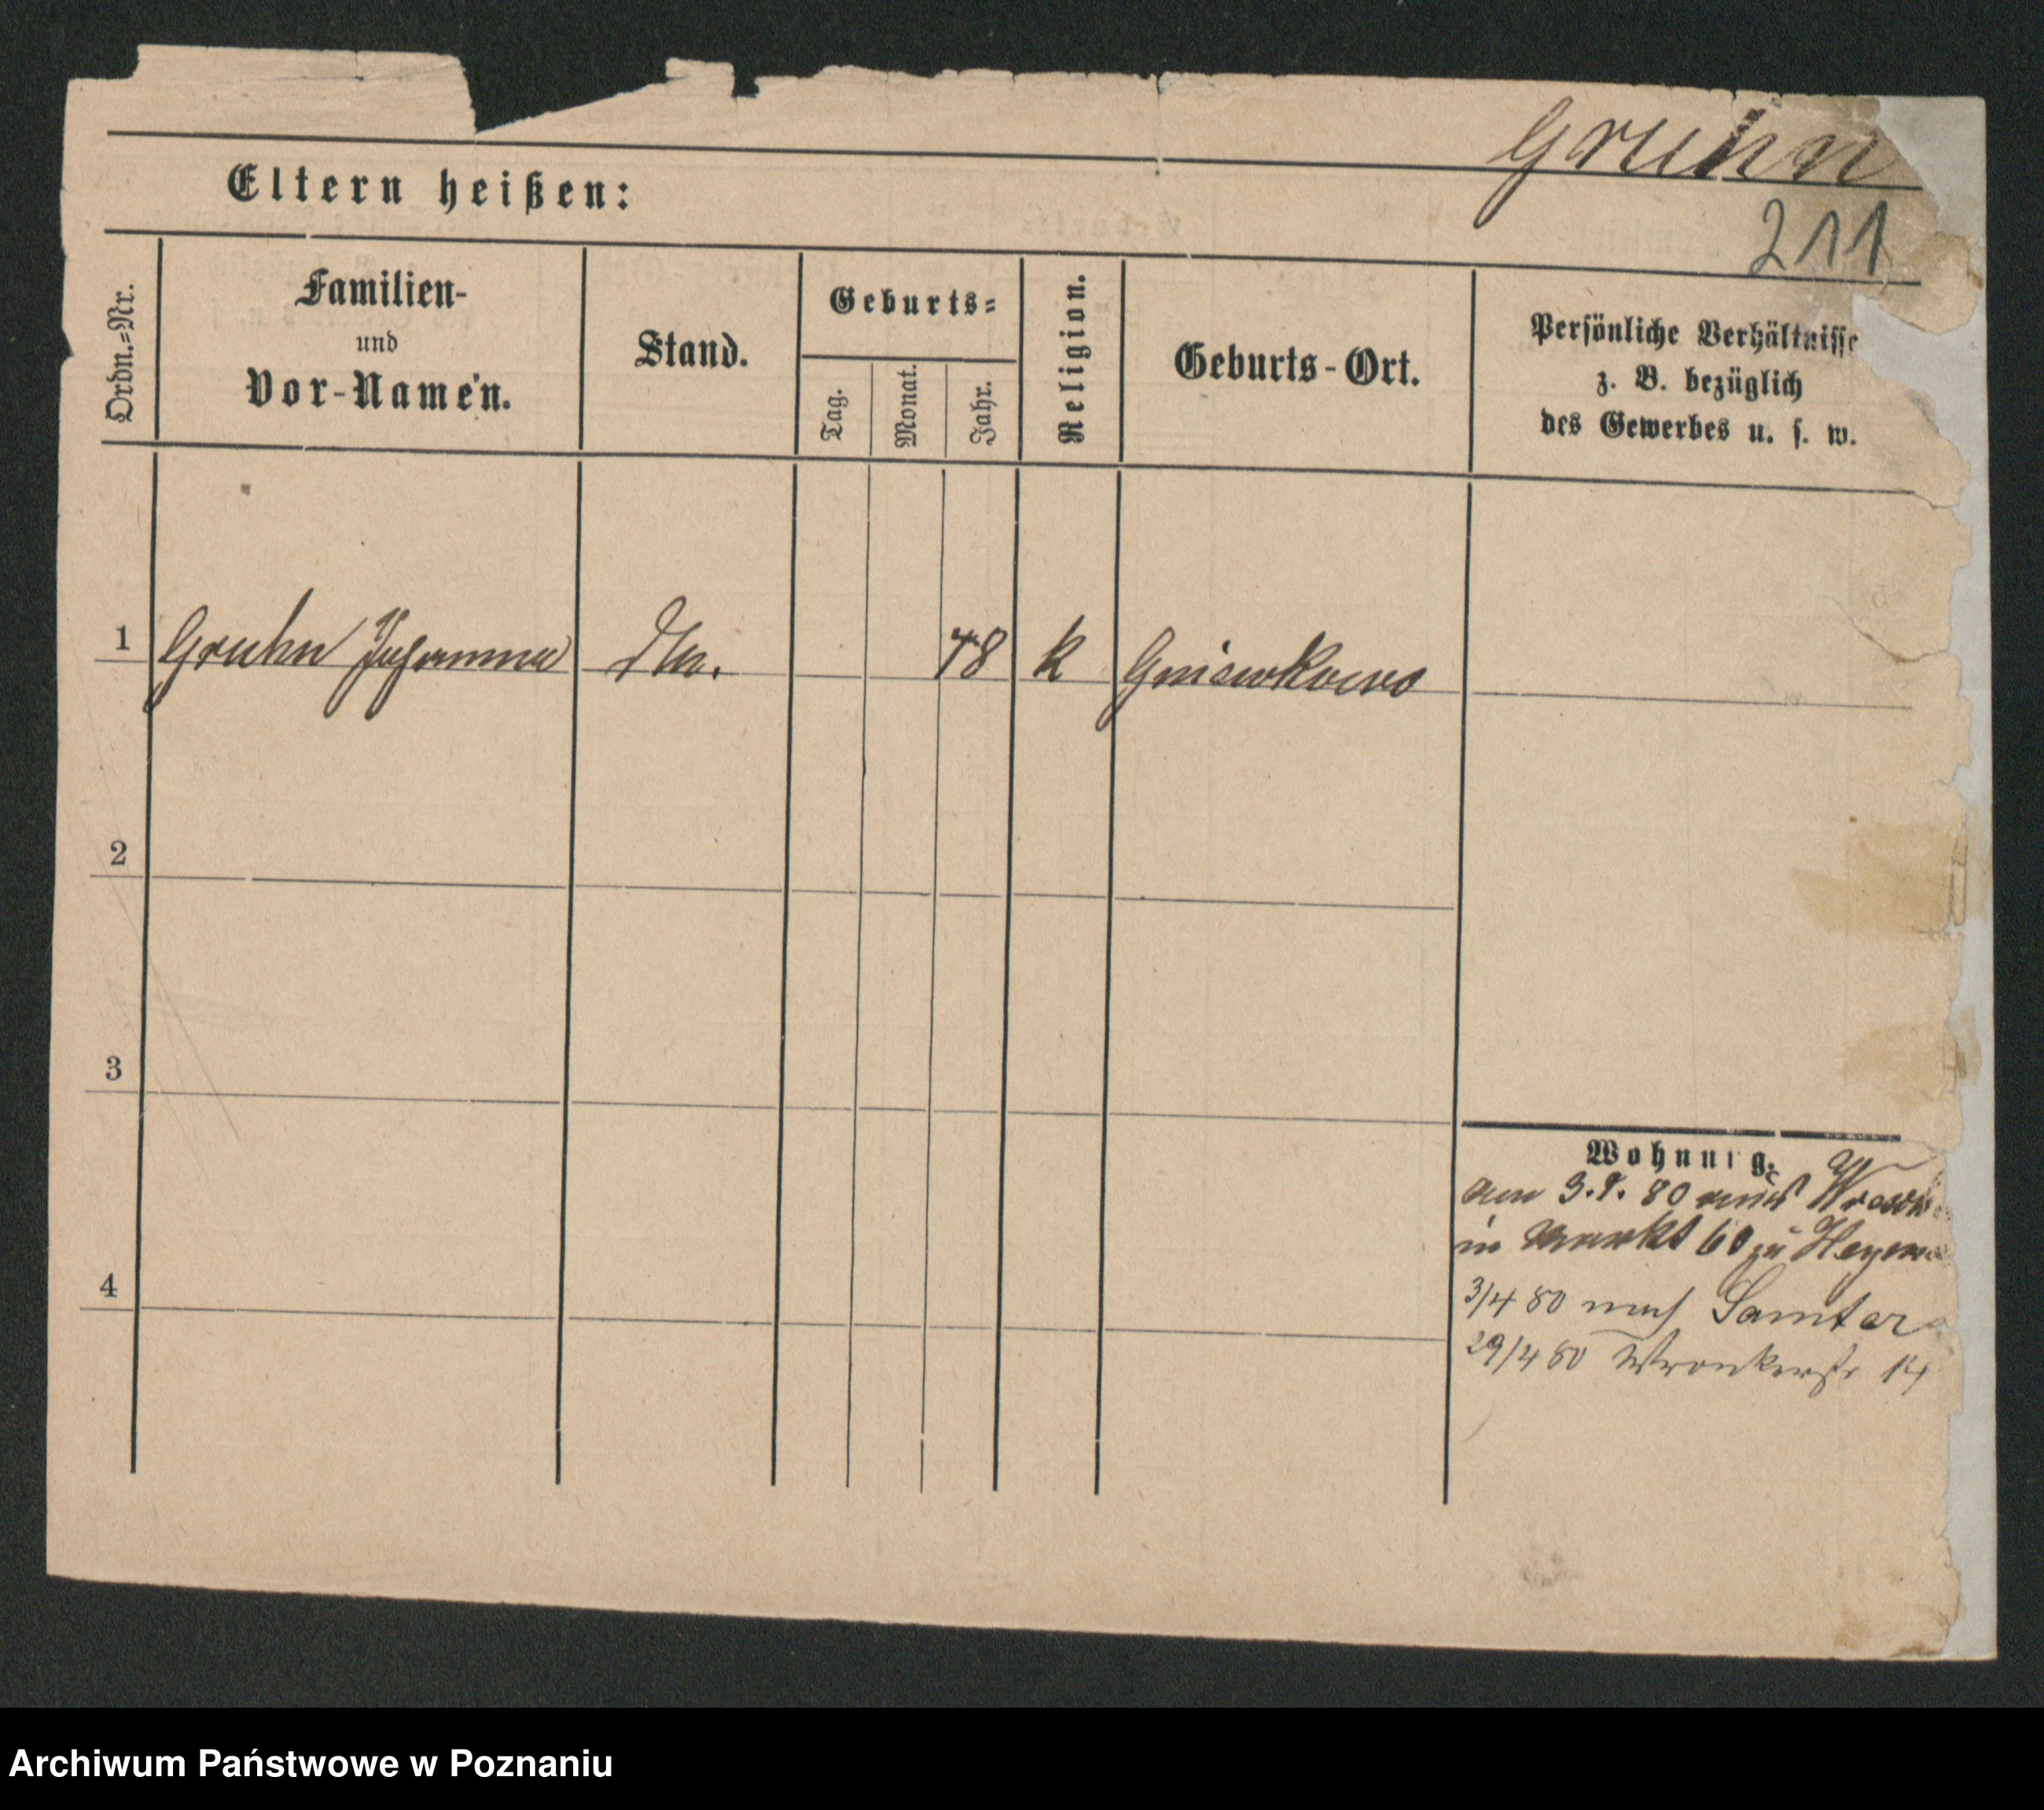 Gruhn
Eltern heißen:
211
Ordn.=Nr.
Familien-
und
Vor-Namen.
Stand.
Geburts=
Tag.
Monat.
Jahr.
Religion.
Geburts-Ort.
Persönliche Verhältnisse
z. B. bezüglich
des Gewerbes u. s. w.
1 Gruhn Johanna 48 k Gniewkowo
2
3
4
Wohnung.
3. 80 aus
in Markt 60 zu
3/4 80 nach Samter
29/4 80 Wronkerstr 14
Archiwum Państwowe w Poznaniu